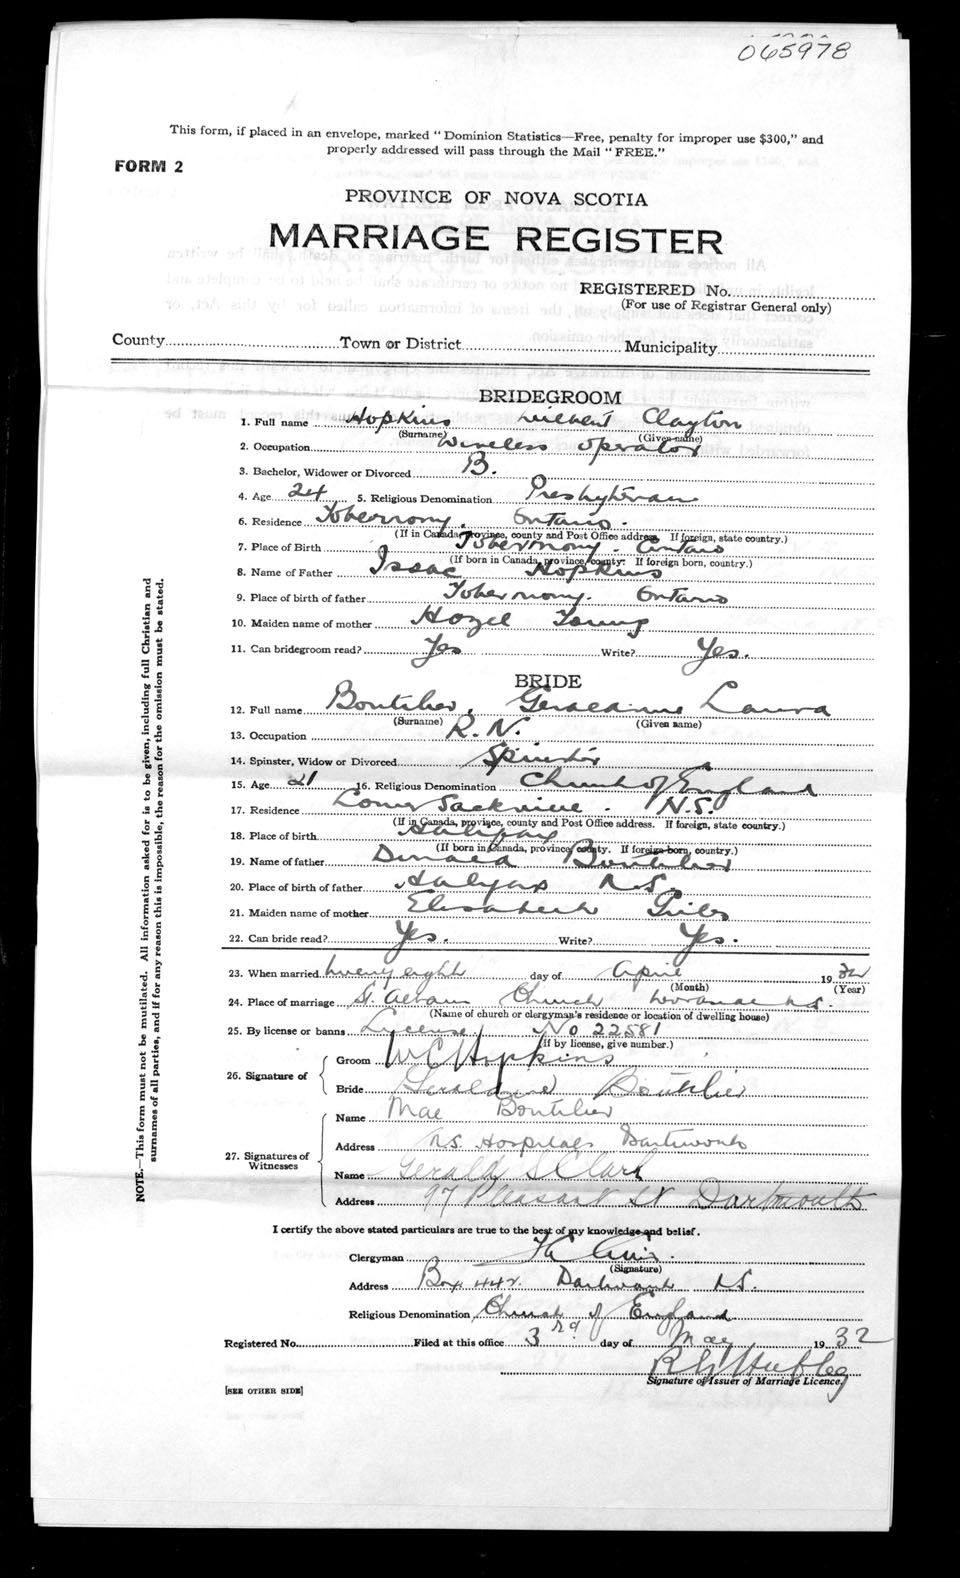 065978
This form, if placed in an envelope, marked "Dominion Statistics—Free, penalty for improper use $300," and
properly addressed will pass through the Mail "FREE."
FORM 2
PROVINCE OF NOVA SCOTIA
MARRIAGE REGISTER
REGISTERED No.
(For use of Registrar General only)
County Town or District Municipality
BRIDEGROOM
1. Full name Hopkins Clayton
(Surname) (Given name)
2. Occupation Wireless operator
3. Bachelor, Widower or Divorced B.
4. Age 24 5. Religious Denomination Presbyterian
6. Residence Tobermory, Ontario.
(If in Canada, province, county and Post Office address. If foreign, state country.)
7. Place of Birth Tobermory. Ontario
(If born in Canada, province, county: If foreign born, country.)
8. Name of Father Isaac Hopkins
9. Place of birth of father Tobermory. Ontario
10. Maiden name of mother Hazel Young
11. Can bridegroom read? Yes Write? Yes.
BRIDE
12. Full name Boutilier, Geraldine Laura
(Surname) (Given name)
13. Occupation R.N.
14. Spinster, Widow or Divorced Spinster
15. Age 21 16. Religious Denomination Church of England
17. Residence Lower Sackville. N.S.
(If in Canada, province, county and Post Office address. If foreign, state country.)
18. Place of birth Halifax
(If born in Canada, province, county. If foreign-born, country.)
19. Name of father Boutilier
20. Place of birth of father Halifax N.S.
21. Maiden name of mother Elisabeth
22. Can bride read? Yes. Write? Yes.
23. When married twenty eighth day of April 1932
(Month) (Year)
24. Place of marriage St. Albans Church N.S.
(Name of church or clergyman's residence or location of dwelling house)
25. By license or banns Lycense No 22581
(If by license, give number.)
26. Signature of Groom W C Hopkins
Bride Geraldine Boutilier
27. Signatures of Witnesses
Name Mae Boutilier
Address N.S. Hospital Dartmouth
Name Gerald S Clark
Address 97 Pleasant St Dartmouth
I certify the above stated particulars are true to the best of my knowledge and belief.
Clergyman
(Signature)
Address Box 442. Dartmouth N.S.
Religious Denomination Church of England
Registered No. Filed at this office 3rd day of May 1932
Signature of Issuer of Marriage Licence.
[SEE OTHER SIDE]
NOTE.—This form must not be mutilated. All information asked for is to be given, including full Christian and
surnames of all parties, and if for any reason this is impossible, the reason for the omission must be stated.